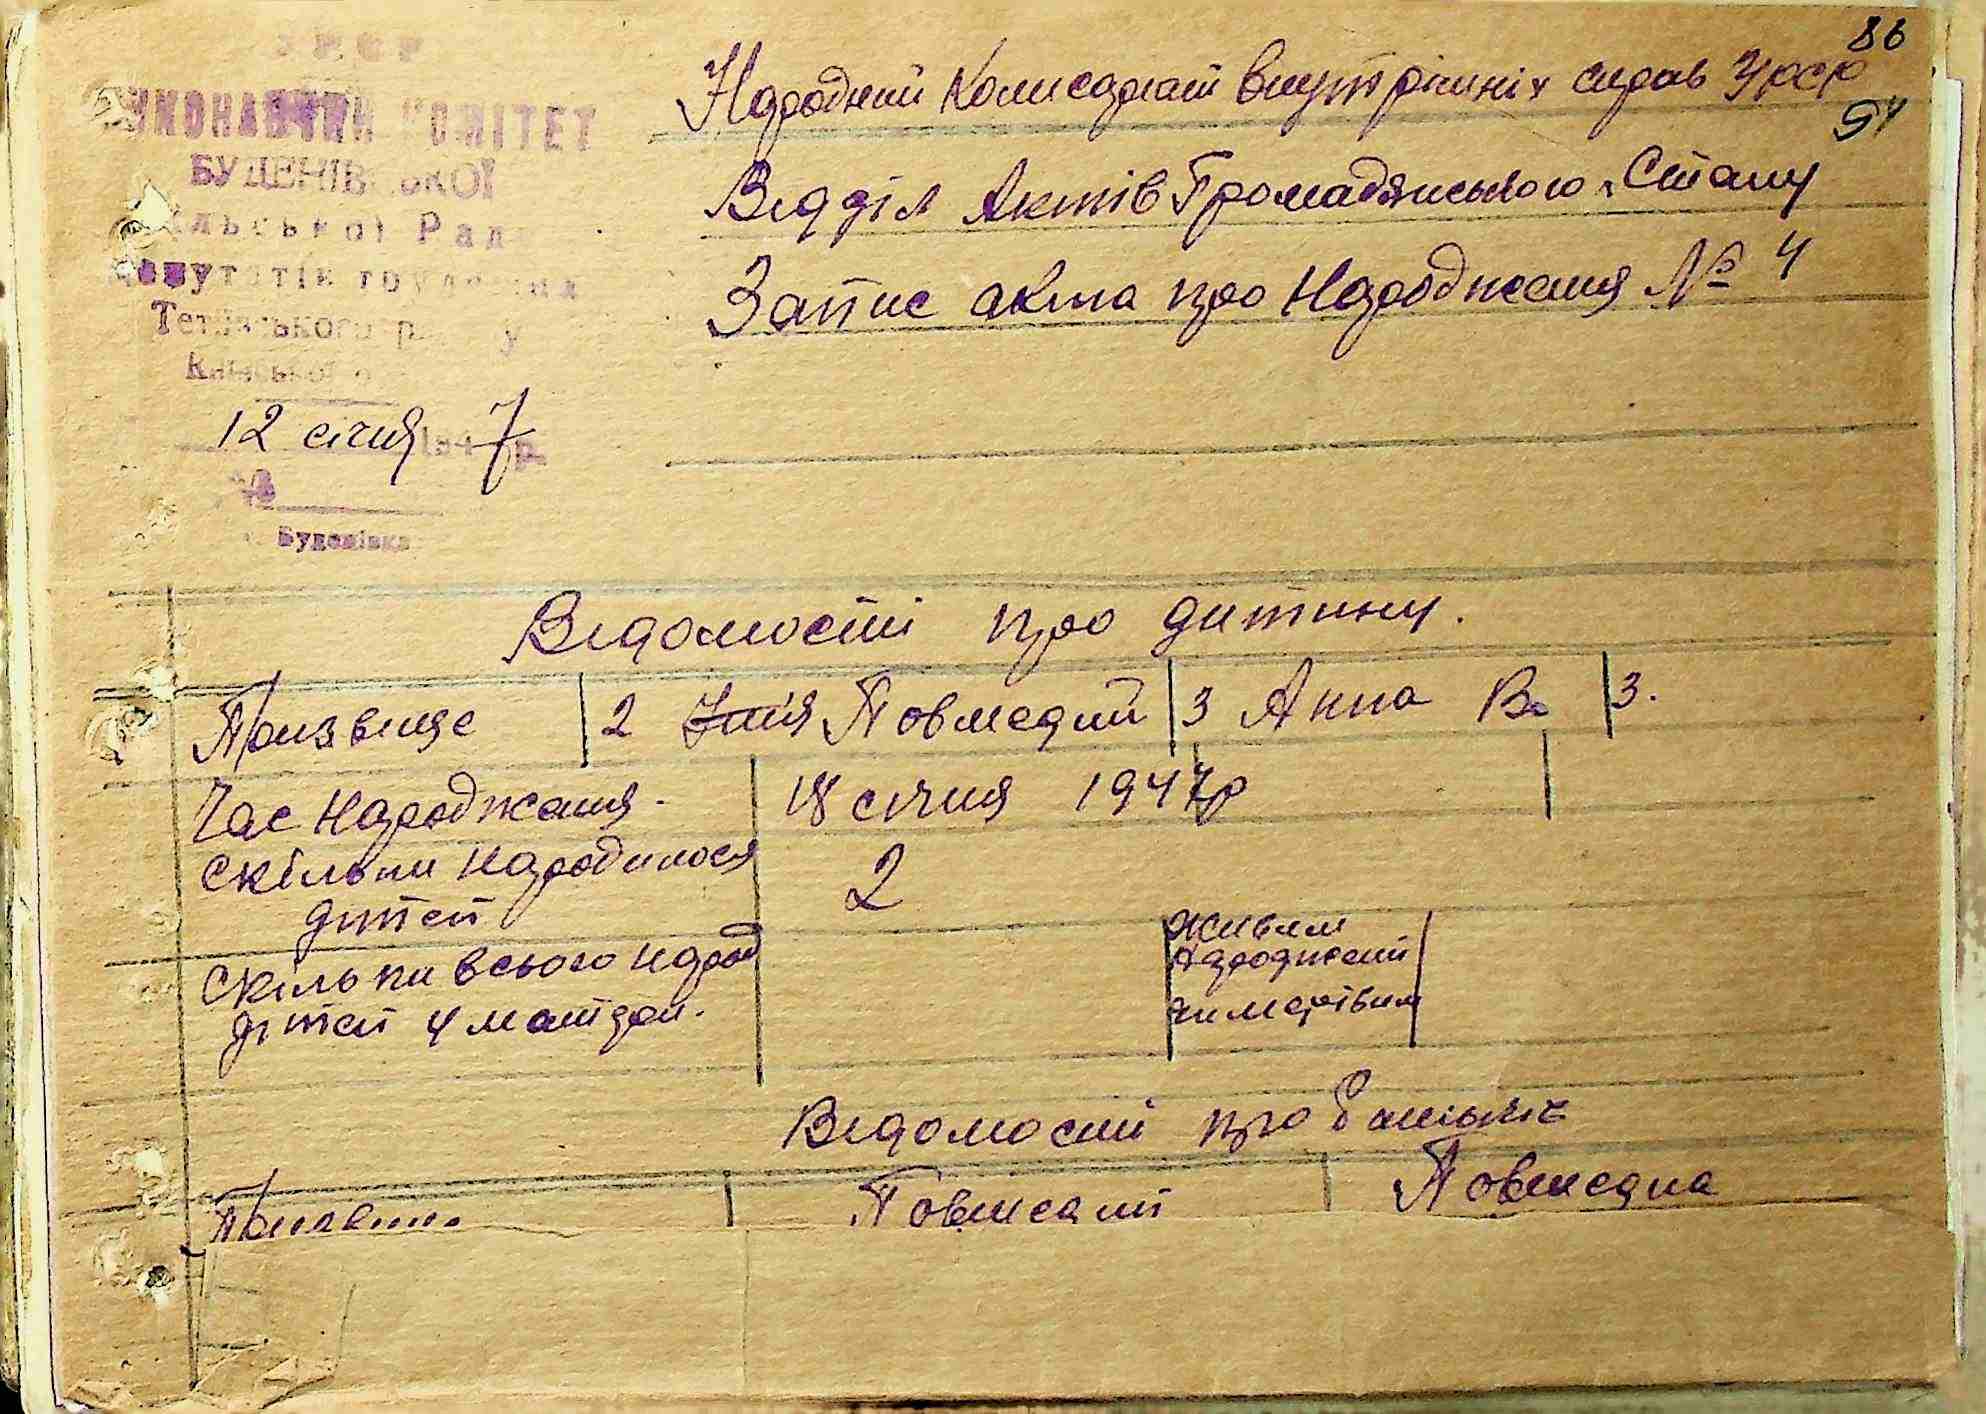 86
Народний Комисаріат внутрішніх справ УРСР
94
Відділ Актів Громадянського Стану
Запис акта про народження № 4
УРСР
ВИКОНАВЧИЙ КОМІТЕТ
БУДЕНІВСЬКОЇ
сільської Ради
депутатів трудящих
Тетіївського району
Київської
12 січня 1947 р.
№
Буденівка
Відомості про дитину.
Прізвище 2 Імія Повшедний 3 Анна В. 3.
Час народження. 18 січня 1947р
Скільки народилося 2
дітей
Скільки всього народ
дітей у матери.
живим
народжений
чи мертвим
Відомості про батьків
Прізвище Повшедний Повшедна